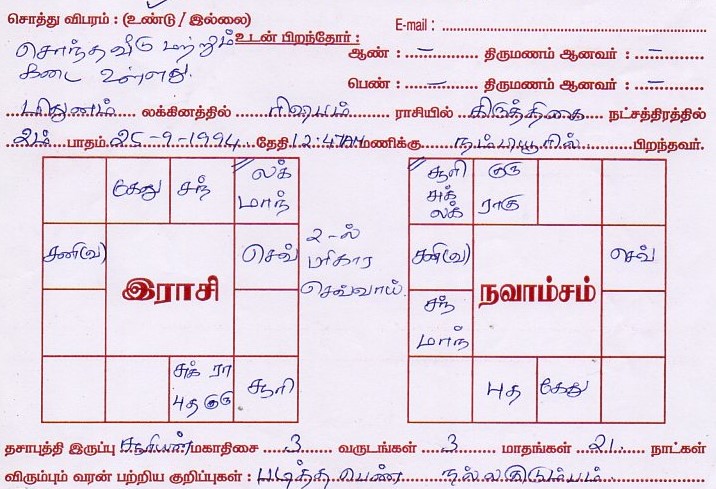 சொத்து விபரம் : (உண்டு / இல்லை)
E-mail :
சொந்த வீடு மற்றும்
உடன் பிறந்தோர் :
கடை உள்ளது.
ஆண் : – திருமணம் ஆனவர் : –
பெண் : – திருமணம் ஆனவர் : –
மிதுனம் லக்கினத்தில் ரிஷபம் ராசியில் கிருத்திகை நட்சத்திரத்தில்
2ம் பாதம் 25-9-1994 தேதி 12:47AM மணிக்கு நம்பியூரில் பிறந்தவர்.
கேது சந் லக் மாந்
சனி(வ) செவ்
இராசி
சுக் ரா புத குரு சூரி
2-ல்
பரிகார
செவ்வாய்.
சூரி சுக் லக் குரு ராகு
சனி(வ) செவ்
நவாம்சம்
சந் மாந்
புத கேது
தசாபுத்தி இருப்பு சூரியன் மகாதிசை 3 வருடங்கள் 3 மாதங்கள் 21 நாட்கள்
விரும்பும் வரன் பற்றிய குறிப்புகள் : படித்த பெண் நல்ல குடும்பம்.